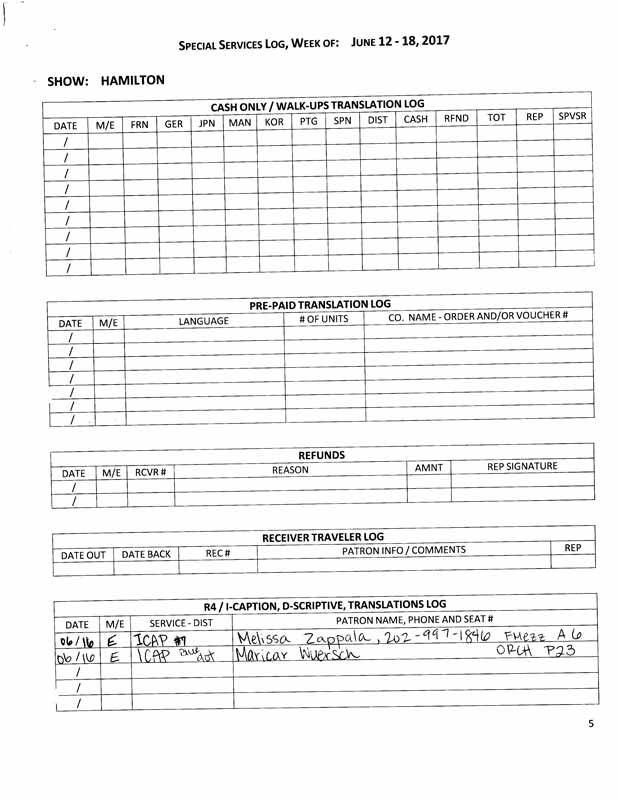 SPECIAL SERVICES LOG, WEEK OF: JUNE 12 - 18, 2017
SHOW: HAMILTON
CASH ONLY / WALK-UPS TRANSLATION LOG
DATE M/E FRN GER JPN MAN KOR PTG SPN DIST CASH RFND TOT REP SPVSR
/
/
/
/
/
/
/
/
/
PRE-PAID TRANSLATION LOG
DATE M/E LANGUAGE # OF UNITS CO. NAME - ORDER AND/OR VOUCHER #
/
/
/
/
/
/
/
REFUNDS
DATE M/E RCVR # REASON AMNT REP SIGNATURE
/
/
RECEIVER TRAVELER LOG
DATE OUT DATE BACK REC # PATRON INFO / COMMENTS REP
R4 / I-CAPTION, D-SCRIPTIVE, TRANSLATIONS LOG
DATE M/E SERVICE - DIST PATRON NAME, PHONE AND SEAT #
06/16 E ICAP #7 Melissa Zappala, 202-997-1846 FMEZZ A6
06/16 E ICAP Blue dot Maricar Wuersch ORCH P23
/
/
/
5